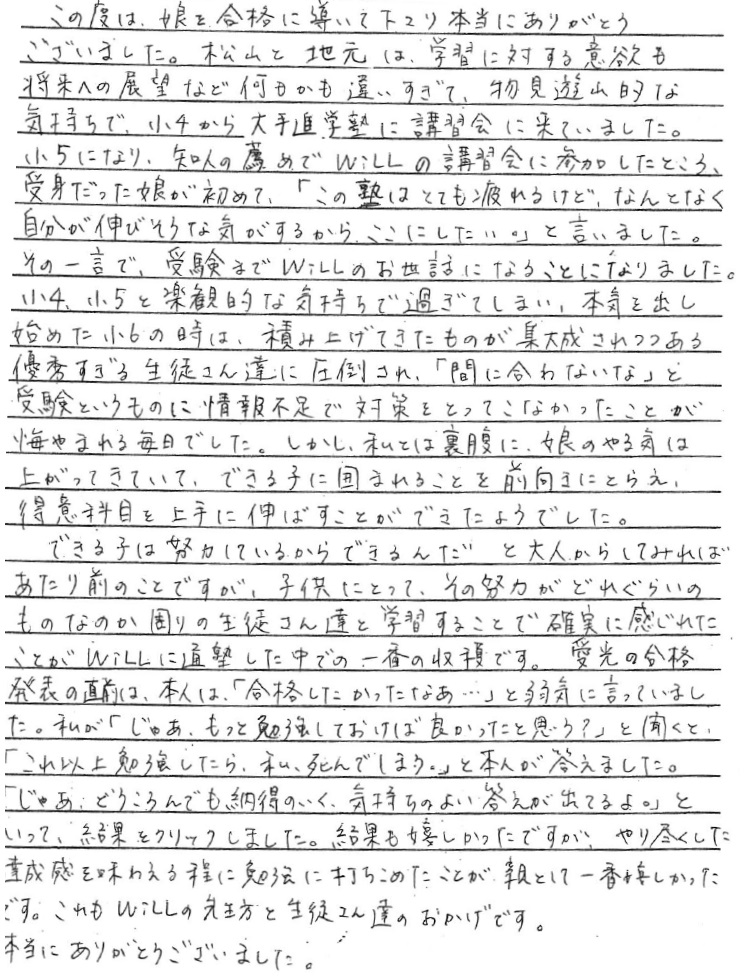 この度は、娘を合格に導いて下さり本当にありがとう
ございました。松山と地元は、学習に対する意欲も
将来への展望など何もかも違いすぎて、物見遊山的な
気持ちで、小4から大手進学塾に講習会に来ていました。
小5になり、知人の薦めでWiLLの講習会に参加したところ、
受身だった娘が初めて、「この塾はとても疲れるけど、なんとなく
自分が伸びそうな気がするから、ここにしたい。」と言いました。
その一言で、受験までWiLLのお世話になることになりました。
小4、小5と楽観的な気持ちで過ぎてしまい、本気を出し
始めた小6の時は、積み上げてきたものが集大成されつつある
優秀すぎる生徒さん達に圧倒され、「間に合わないな」と
受験というものに情報不足で対策をとってこなかったことが
悔やまれる毎日でした。しかし、私とは裏腹に、娘のやる気は
上がってきていて、できる子に囲まれることを前向きにとらえ、
得意科目を上手に伸ばすことができたようでした。
できる子は努力しているからできるんだ と大人からしてみれば
あたり前のことですが、子供にとって、その努力がどれぐらいの
ものなのか周りの生徒さん達と学習することで確実に感じれた
ことがWiLLに通塾した中での一番の収穫です。愛光の合格
発表の直前は、本人は、「合格したかったなあ…」と弱気に言っていまし
た。私が「じゃあ、もっと勉強しておけば良かったと思う?」と聞くと、
「これ以上勉強したら、私、死んでしまう。」と本人が答えました。
「じゃあ、どうころんでも納得のいく、気持ちのよい答えが出てるよ。」と
いって、結果をクリックしました。結果も嬉しかったですが、やり尽くした
達成感を味わえる程に勉強に打ちこめたことが、親として一番嬉しかった
です。これもWiLLの先生方と生徒さん達のおかげです。
本当にありがとうございました。